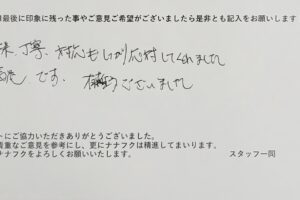 最後に印象に残った事やご意見ご希望がございましたら是非とも記入をお願いします
丁寧、対応もしっかり応対してくれました
です。ありがとうございました
トにご協力いただきありがとうございました。
貴重なご意見を参考にし、更にナナフクは精進してまいります。
ナナフクをよろしくお願いいたします。 スタッフ一同